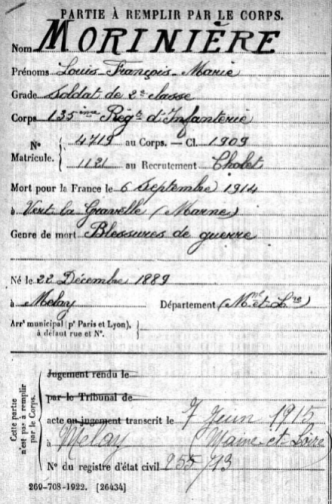 PARTIE À REMPLIR PAR LE CORPS.
Nom MORINIÈRE
Prénoms Louis-François-Marie
Grade Soldat de 2e classe
Corps 135ème Régt d'Infanterie
N° Matricule. 4719 au Corps. — Cl. 1909
1121 au Recrutement Cholet
Mort pour la France le 6 Septembre 1914
à Vert la Gravelle (Marne)
Genre de mort Blessures de guerre
Né le 22 Décembre 1889
à Melay Département (Mne et Lre)
Arrt municipal (pr Paris et Lyon),
à défaut rue et N°.
Cette partie n'est pas à remplir par le Corps.
Jugement rendu le
par le Tribunal de
acte ou jugement transcrit le 7 Juin 1915
à Melay (Maine-et-Loire)
N° du registre d'état civil 255/73
269-708-1922. [26434]